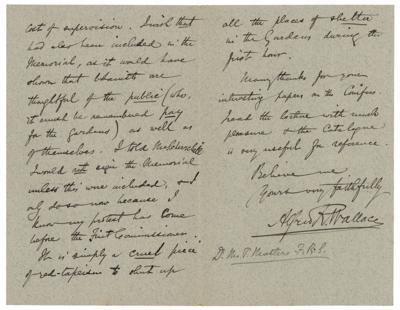 cost of supervision. I wish that
had also been included in the
Memorial, as it would have
shown that botanists are
thoughtful of the public (who,
it must be remembered pay
for the Gardens) as well as
of themselves. I told
I would not sign the Memorial
unless this were included, and
only do so now because I
know my protest has come
before the First Commissioner.
It is simply a cruel piece
of red-tapeism to shut up
all the places of shelter
in the Gardens during the
first hour.
Many thanks for your
interesting papers on the Conifers.
I read the lecture with much
pleasure & the Catalogue
is very useful for reference.
Believe me
Yours very faithfully
Alfred R. Wallace
Dr. M. T. Masters F.R.S.